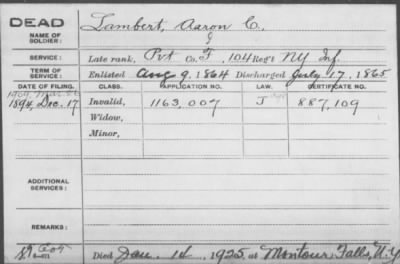 DEAD
NAME OF SOLDIER: Lambert, Aaron C.
SERVICE: Late rank, Pvt Co. F, 104 Reg't NY Inf.
TERM OF SERVICE: Enlisted Aug 9, 1864 Discharged July 17, 1865
DATE OF FILING. CLASS. APPLICATION NO. LAW. CERTIFICATE NO.
1894, Dec. 17 Invalid, 1163,007 J 887,109
Widow,
Minor,
ADDITIONAL SERVICES:
REMARKS:
Died Jan. 14, 1925, at Montour Falls, N.Y.